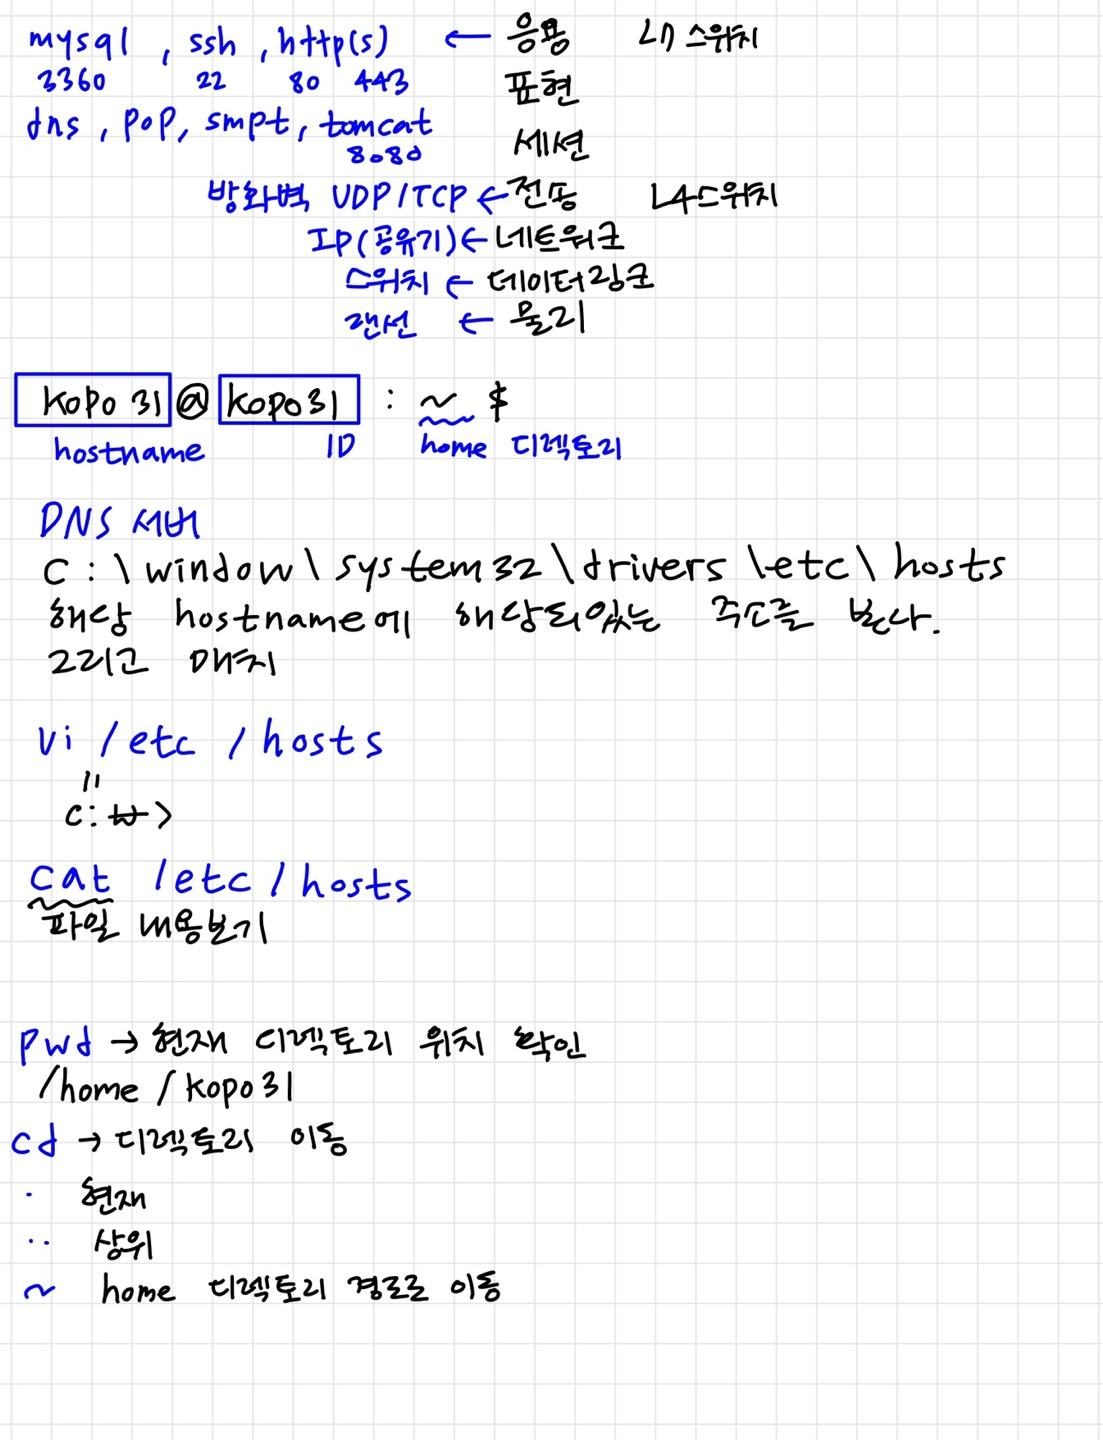 mysql , ssh , http(s) ← 응용 L7 스위치
3360 22 80 443 표현
dns , pop, smpt, tomcat 세션
8080
방화벽 UDP/TCP ← 전송 L4스위치
IP(공유기) ← 네트워크
스위치 ← 데이터링크
랜선 ← 물리
kopo31@kopo31 : ~ $
hostname ID home 디렉토리
DNS 서버
C:\window\system32\drivers\etc\hosts
해당 hostname에 해당되있는 주소를 본다.
그리고 매치
vi /etc /hosts
"
c:₩>
cat /etc/hosts
파일 내용보기
pwd → 현재 디렉토리 위치 확인
/home/kopo31
cd → 디렉토리 이동
. 현재
.. 상위
~ home 디렉토리 경로로 이동